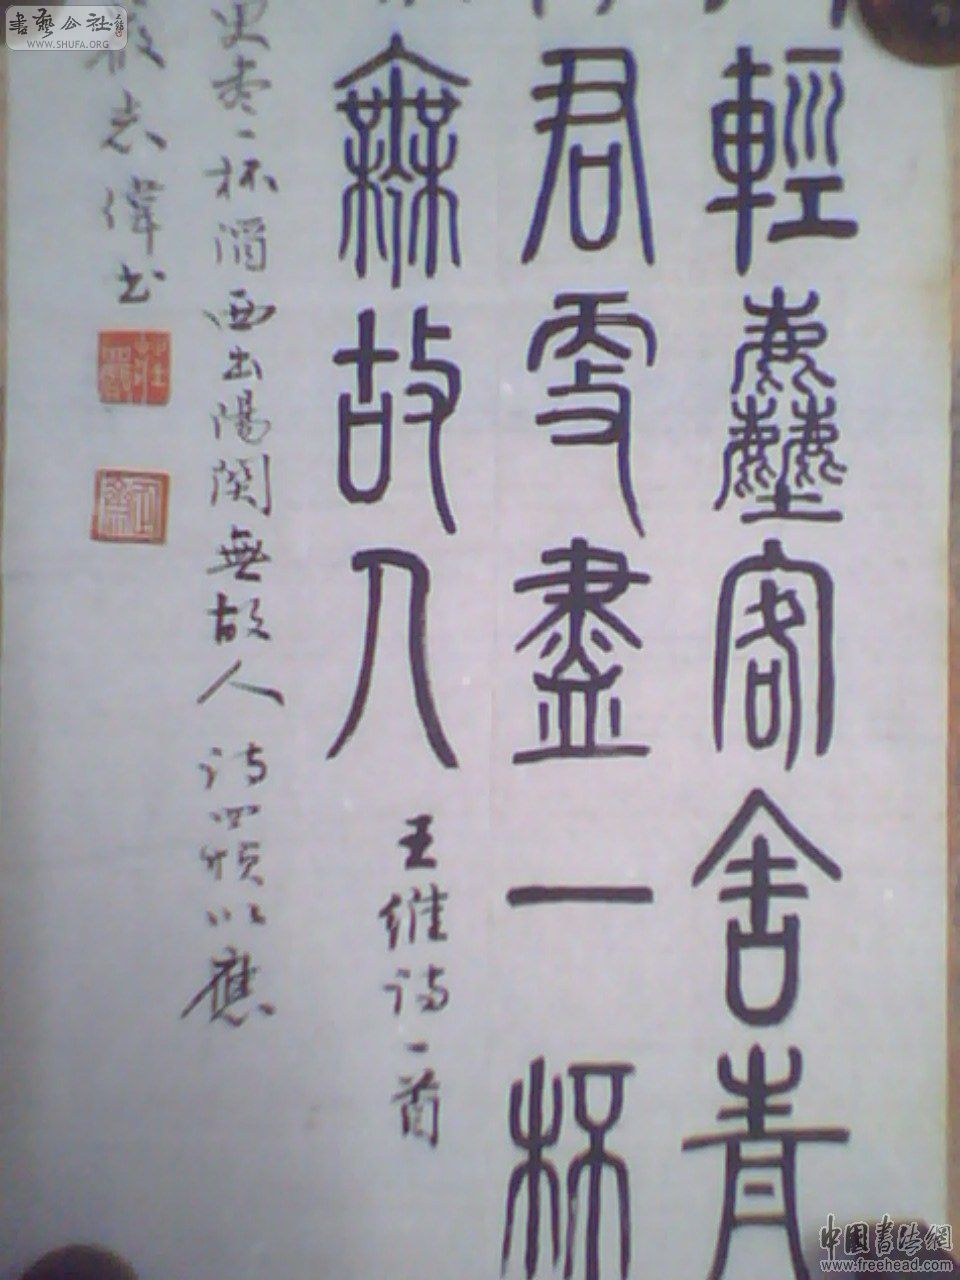 輕塵客舍青
君更盡一杯
無故人
王維詩一首
更盡一杯酒西出陽関無故人诗四頻以應
志偉书
書藝公社
WWW.SHUFA.ORG
中國書法網
www.freehead.com